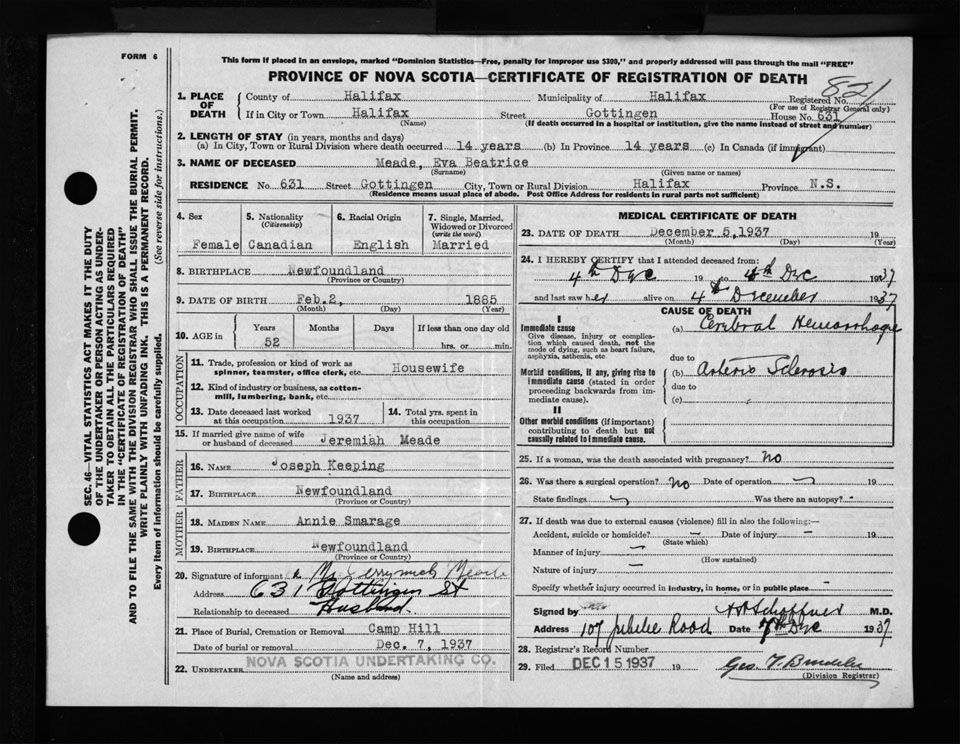 FORM 6
This form if placed in an envelope, marked "Dominion Statistics—Free, penalty for improper use $300," and properly addressed will pass through the mail "FREE"
PROVINCE OF NOVA SCOTIA—CERTIFICATE OF REGISTRATION OF DEATH
821
1. PLACE OF DEATH
County of Halifax Municipality of Halifax Registered No.
(For use of Registrar General only)
If in City or Town Halifax Street Gottingen House No. 631
(Name) (If death occurred in a hospital or institution, give the name instead of street and number)
2. LENGTH OF STAY (in years, months and days)
(a) In City, Town or Rural Division where death occurred 14 years (b) In Province 14 years (c) In Canada (if immigrant)
3. NAME OF DECEASED Meade, Eva Beatrice
(Surname) (Given name or names)
RESIDENCE No. 631 Street Gottingen City, Town or Rural Division Halifax Province N.S.
(Residence means usual place of abode. Post Office Address for residents in rural parts not sufficient)
4. Sex
Female
5. Nationality
(Citizenship)
Canadian
6. Racial Origin
English
7. Single, Married,
Widowed or Divorced
(write the word)
Married
8. BIRTHPLACE Newfoundland
(Province or Country)
9. DATE OF BIRTH Feb.2, 1885
(Month) (Day) (Year)
10. AGE in Years Months Days If less than one day old
52 hrs. or min.
OCCUPATION
11. Trade, profession or kind of work as
spinner, teamster, office clerk, etc. Housewife
12. Kind of industry or business, as cotton-
mill, lumbering, bank, etc.
13. Date deceased last worked
at this occupation 1937
14. Total yrs. spent in
this occupation
15. If married give name of wife
or husband of deceased Jeremiah Meade
FATHER
16. NAME Joseph Keeping
17. BIRTHPLACE Newfoundland
(Province or Country)
MOTHER
18. MAIDEN NAME Annie Smarage
19. BIRTHPLACE Newfoundland
(Province or Country)
20. Signature of informant Meade
Address 631 Gottingen St
Relationship to deceased Husband
21. Place of Burial, Cremation or Removal Camp Hill
Date of burial or removal Dec. 7, 1937
22. UNDERTAKER NOVA SCOTIA UNDERTAKING CO.
(Name and address)
MEDICAL CERTIFICATE OF DEATH
23. DATE OF DEATH December 5,1937 19
(Month) (Day) (Year)
24. I HEREBY CERTIFY that I attended deceased from:
4th Dec 19 to 4th Dec 1937
and last saw her alive on 4th December 1937
CAUSE OF DEATH
I
Immediate cause
Give disease, injury or complica-
tion which caused death, not the
mode of dying, such as heart failure,
asphyxia, asthenia, etc.
(a) Cerebral Hemorrhage
due to
Morbid conditions, if any, giving rise to
immediate cause (stated in order
proceeding backwards from im-
mediate cause).
(b) Arterio Sclerosis
due to
(c)
II
Other morbid conditions (if important)
contributing to death but not
causally related to immediate cause.
25. If a woman, was the death associated with pregnancy? No
26. Was there a surgical operation? No Date of operation 19
State findings Was there an autopsy?
27. If death was due to external causes (violence) fill in also the following:—
Accident, suicide or homicide? Date of injury 19
(State which)
Manner of injury
(How sustained)
Nature of injury
Specify whether injury occurred in industry, in home, or in public place
Signed by M.D.
Address 107 Jubilee Road Date 7th Dec 1937
28. Registrar's Record Number
29. Filed DEC 15 1937 19
(Division Registrar)
SEC. 46—VITAL STATISTICS ACT MAKES IT THE DUTY
OF THE UNDERTAKER OR PERSON ACTING AS UNDER-
TAKER TO OBTAIN ALL THE PARTICULARS REQUIRED
IN THE "CERTIFICATE OF REGISTRATION OF DEATH"
AND TO FILE THE SAME WITH THE DIVISION REGISTRAR WHO SHALL ISSUE THE BURIAL PERMIT.
WRITE PLAINLY WITH UNFADING INK. THIS IS A PERMANENT RECORD.
Every item of information should be carefully supplied. (See reverse side for instructions.)